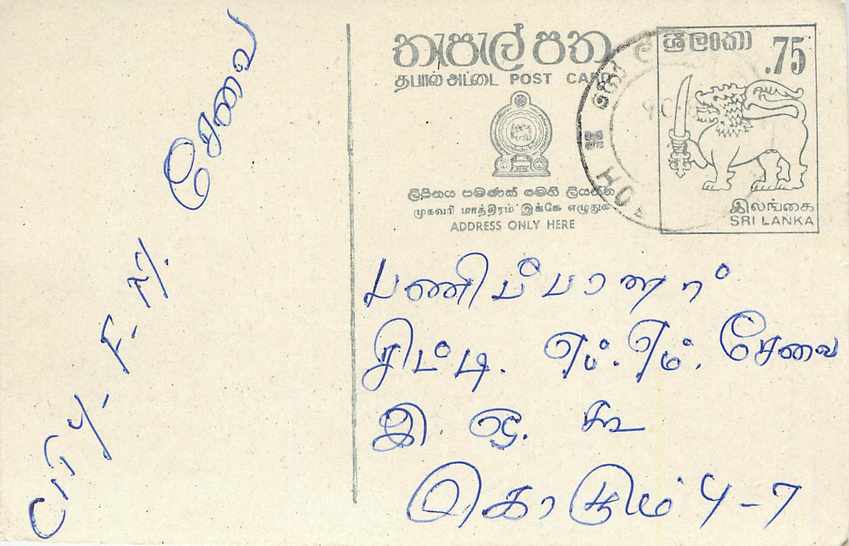 CITY - F - M. சேவை
තැපැල් පත
தபால் அட்டை POST CARD
ලිපිනය පමණක් මෙහි ලියන්න
முகவரி மாத்திரம் இங்கே எழுதுக
ADDRESS ONLY HERE
ශ්‍රී ලංකා
.75
இலங்கை
SRI LANKA
பணிப்பாளர்
சிட்டி. எப்.எம். சேவை
இ. ஒ. கூ
கொழும்பு - 7